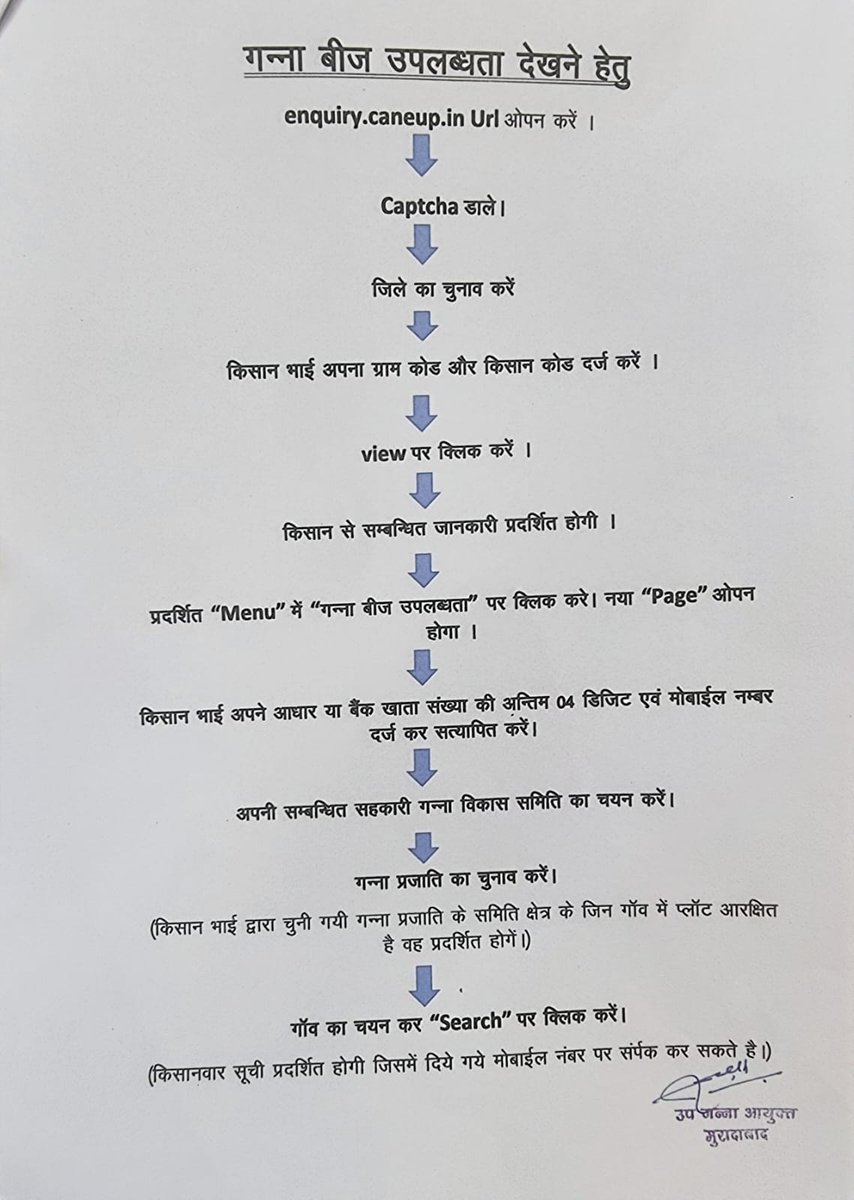 गन्ना बीज उपलब्धता देखने हेतु
enquiry.caneup.in Url ओपन करें ।
Captcha डाले।
जिले का चुनाव करें
किसान भाई अपना ग्राम कोड और किसान कोड दर्ज करें ।
view पर क्लिक करें ।
किसान से सम्बन्धित जानकारी प्रदर्शित होगी ।
प्रदर्शित “Menu” में “गन्ना बीज उपलब्धता” पर क्लिक करे। नया “Page” ओपन
होगा ।
किसान भाई अपने आधार या बैंक खाता संख्या की अन्तिम 04 डिजिट एवं मोबाईल नम्बर
दर्ज कर सत्यापित करें।
अपनी सम्बन्धित सहकारी गन्ना विकास समिति का चयन करें।
गन्ना प्रजाति का चुनाव करें।
(किसान भाई द्वारा चुनी गयी गन्ना प्रजाति के समिति क्षेत्र के जिन गॉव में प्लॉट आरक्षित
है वह प्रदर्शित होगें।)
गॉव का चयन कर “Search” पर क्लिक करें।
(किसानवार सूची प्रदर्शित होगी जिसमें दिये गये मोबाईल नंबर पर संर्पक कर सकते है।)
उप गन्ना आयुक्त
मुरादाबाद